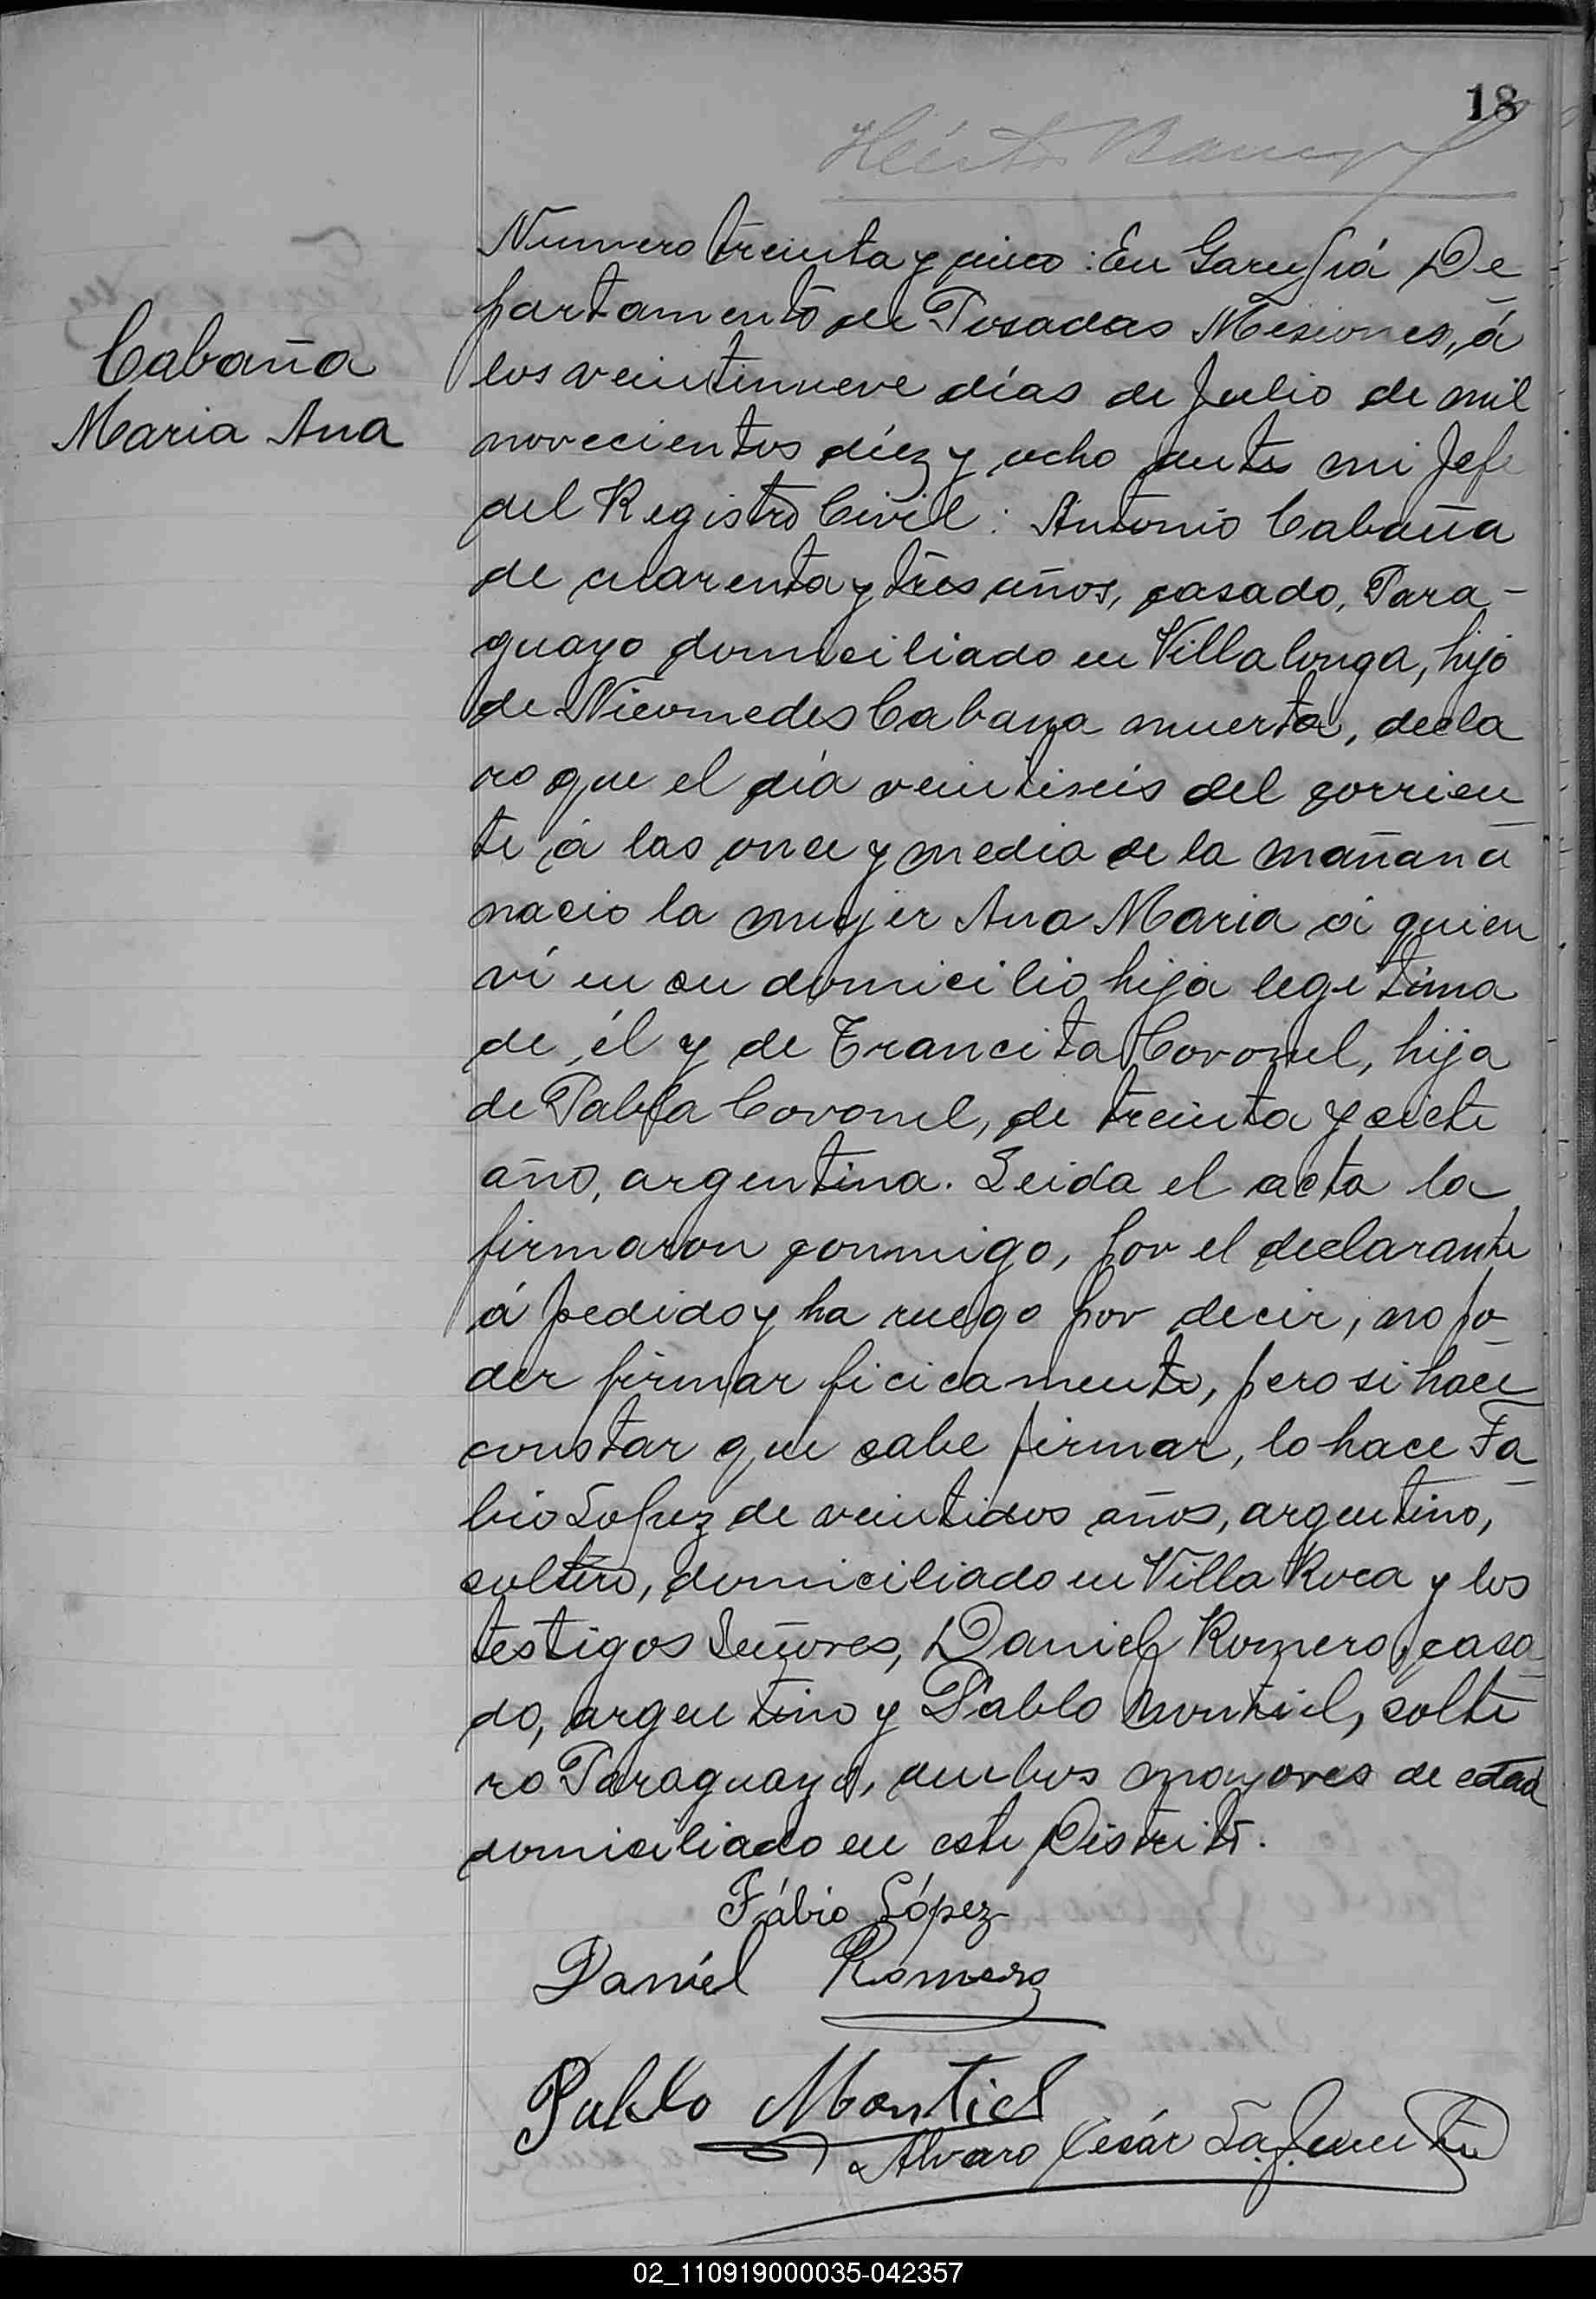 18
Cabaña
Maria Ana
Numero treinta y cinco : En Garupá De
partamento de Posadas Misiones, á
los veintinueve días de Julio de mil
novecientos díez y ocho ante mi Jefe
del Registro Civil : Antonio Cabaña
de cuarenta y tres años, casado, Para-
guayo domiciliado en Villalonga, hijo
de Nicomedes Cabaña muerta, decla
ro que el día veintiseis del corrien
te á las once y media de la mañana
nacio la mujer Ana Maria á quien
ví en su domicilio hija legitima
de él y de Trancita Coronel, hija
de Pabla Coronel, de treinta y siete
año, argentina. Leida el acta la
firmaron conmigo, por el declarante
á pedido y ha ruego por decir, no po
der firmar ficicamente, pero si hace
constar que sabe firmar, lo hace Fa
bio Lopez de veintidos años, argentino,
soltero, domiciliado en Villa Roca y los
testigos Señores, Daniel Romero, casa
do, argentino y Pablo Montiel, solte
ro Paraguayo, ambos mayores de edad
domiciliado en este Distrito.
Fábio López
Daniel Romero
Pablo Montiel
Alvaro César Lafuente
02_110919000035-042357